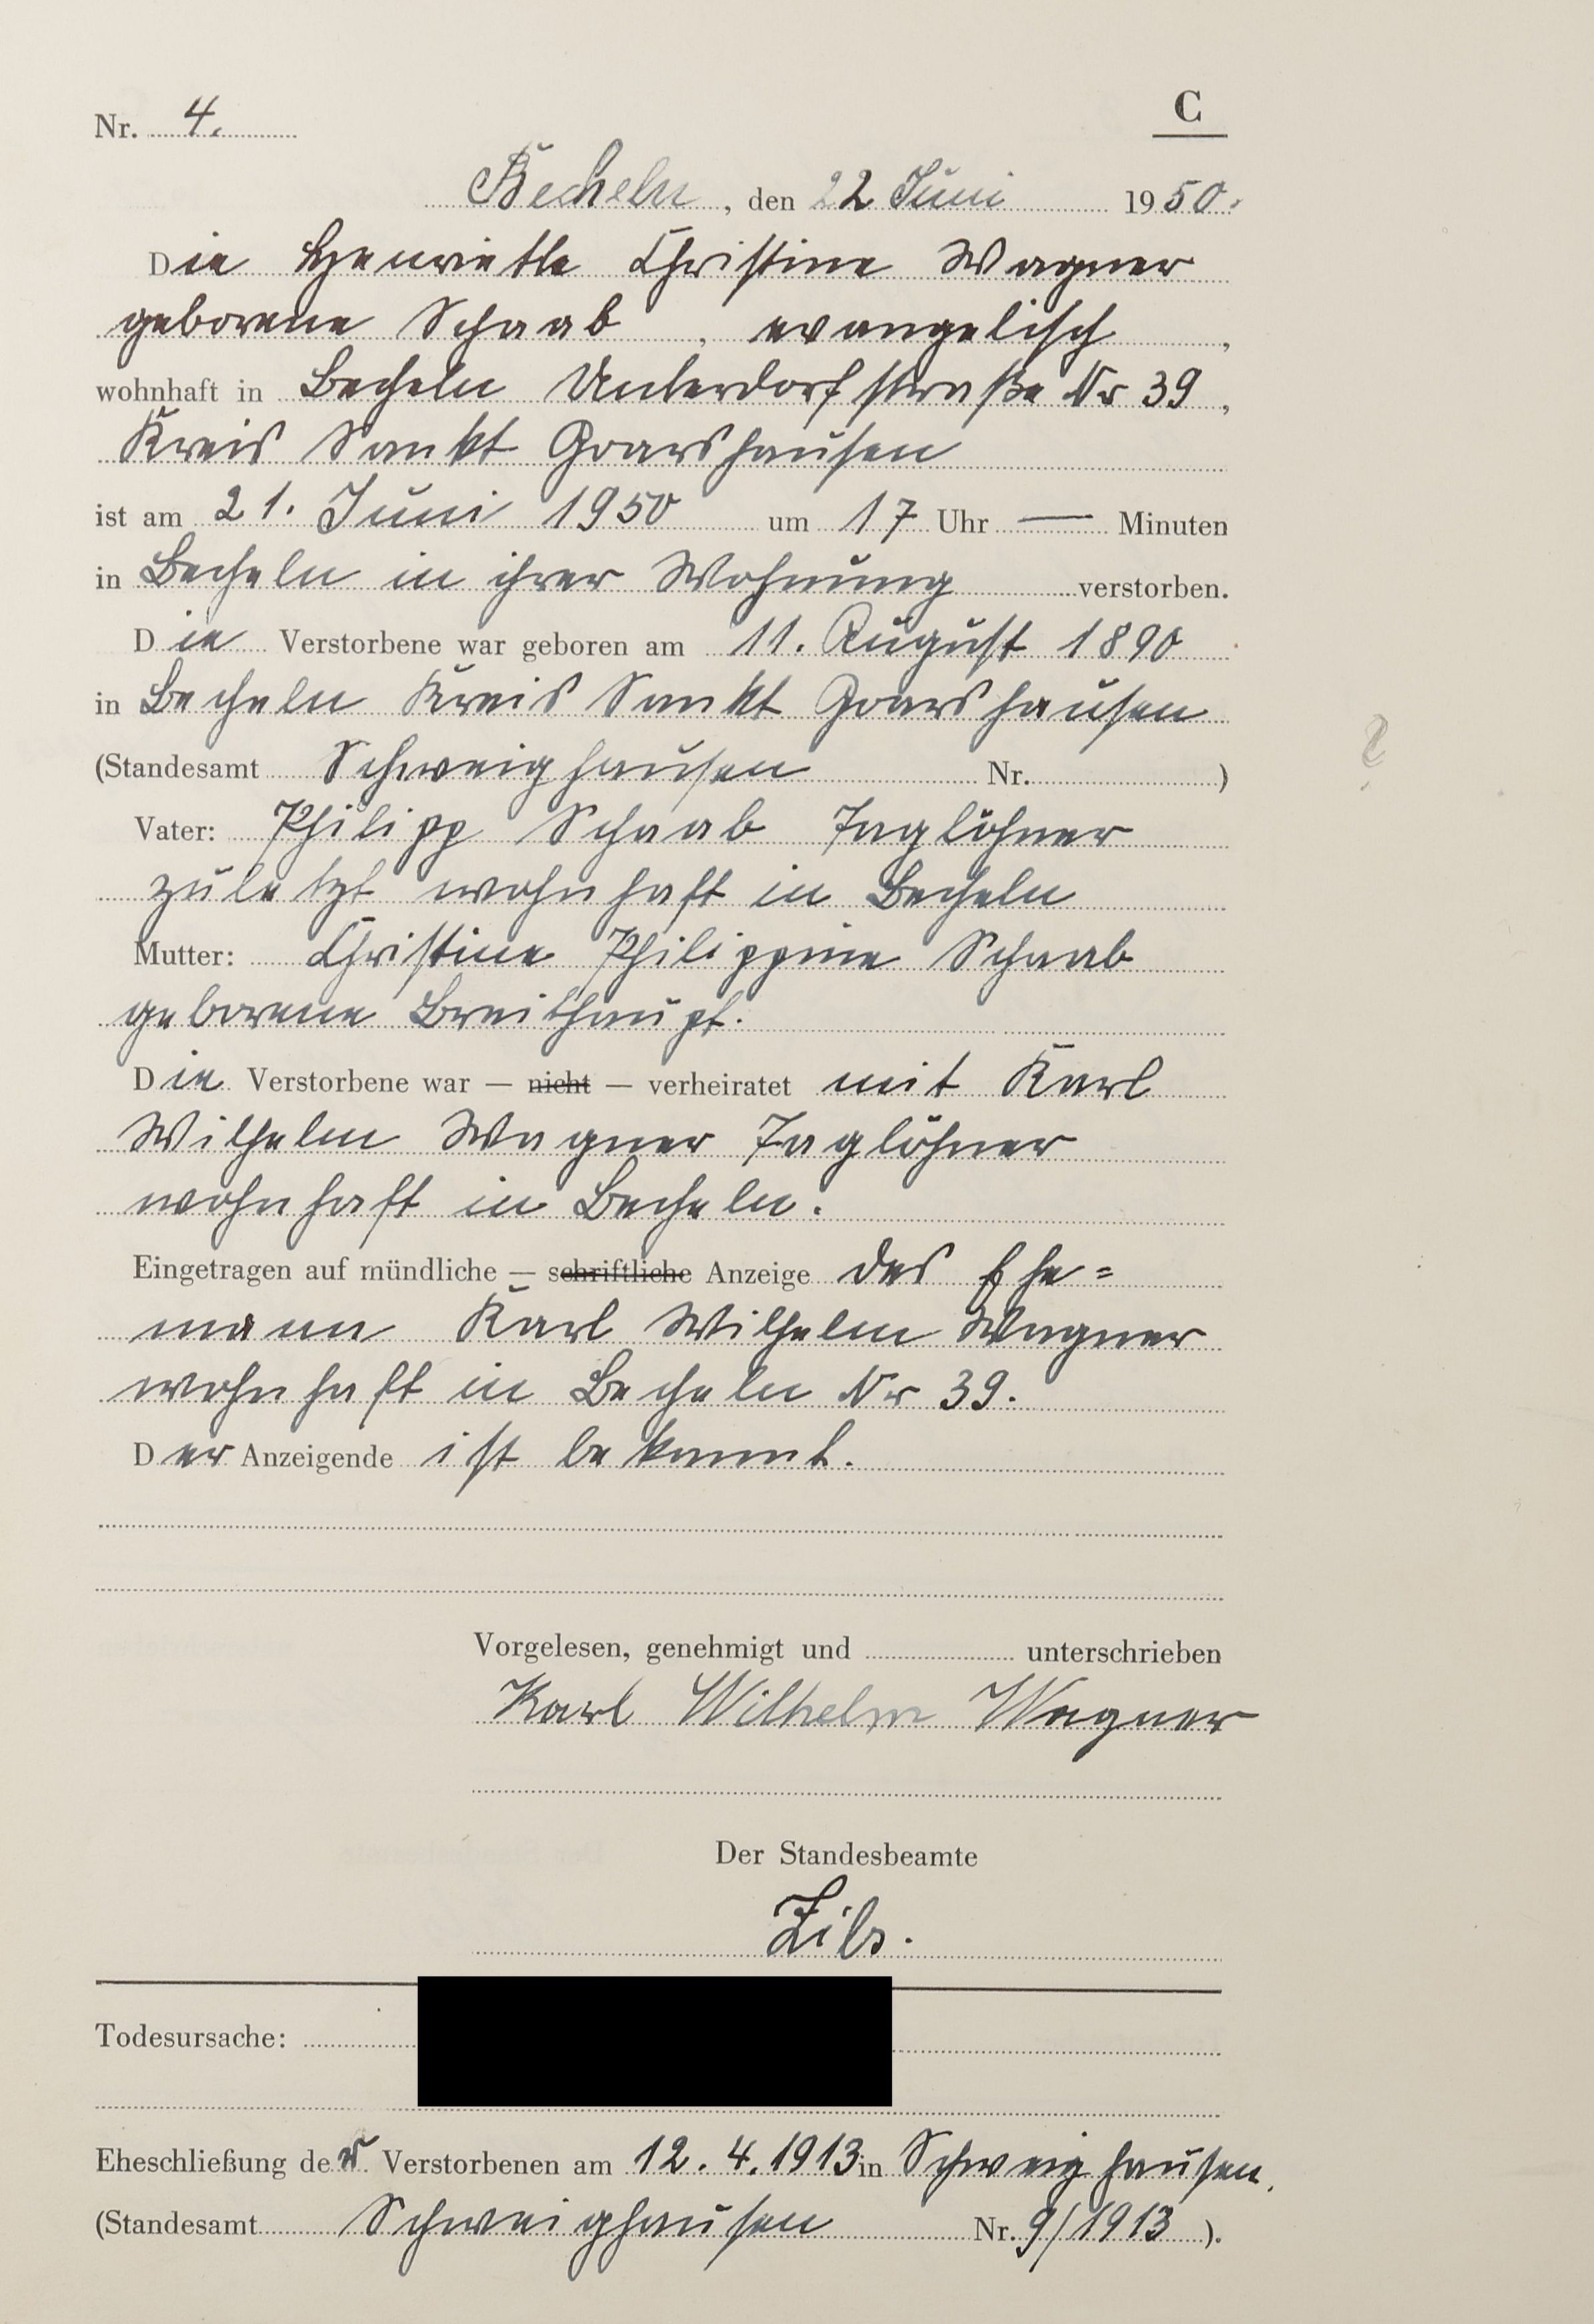 Nr. 4.
C
Becheln, den 22 Juni 1950.
Die Henriette Christine Wagner
geborene Schaab, evangelisch,
wohnhaft in Becheln Unterdorfstraße Nr 39,
Kreis Sankt Goarshausen
ist am 21. Juni 1950 um 17 Uhr — Minuten
in Becheln in ihrer Wohnung verstorben.
Die Verstorbene war geboren am 11. August 1890
in Becheln Kreis Sankt Goarshausen
(Standesamt Schweighausen Nr. )
Vater: Philipp Schaab Taglöhner
zuletzt wohnhaft in Becheln
Mutter: Christine Philippine Schaab
geborene Breithaupt.
Die Verstorbene war — nicht — verheiratet mit Karl
Wilhelm Wagner Taglöhner
wohnhaft in Becheln.
Eingetragen auf mündliche — schriftliche Anzeige des Ehe=
mann Karl Wilhelm Wagner
wohnhaft in Becheln Nr 39.
Der Anzeigende ist bekannt.
Vorgelesen, genehmigt und unterschrieben
Karl Wilhelm Wagner
Der Standesbeamte
Todesursache:
Eheschließung der Verstorbenen am 12. 4. 1913 in Schweighausen.
(Standesamt Schweighausen Nr. 9/1913 ).